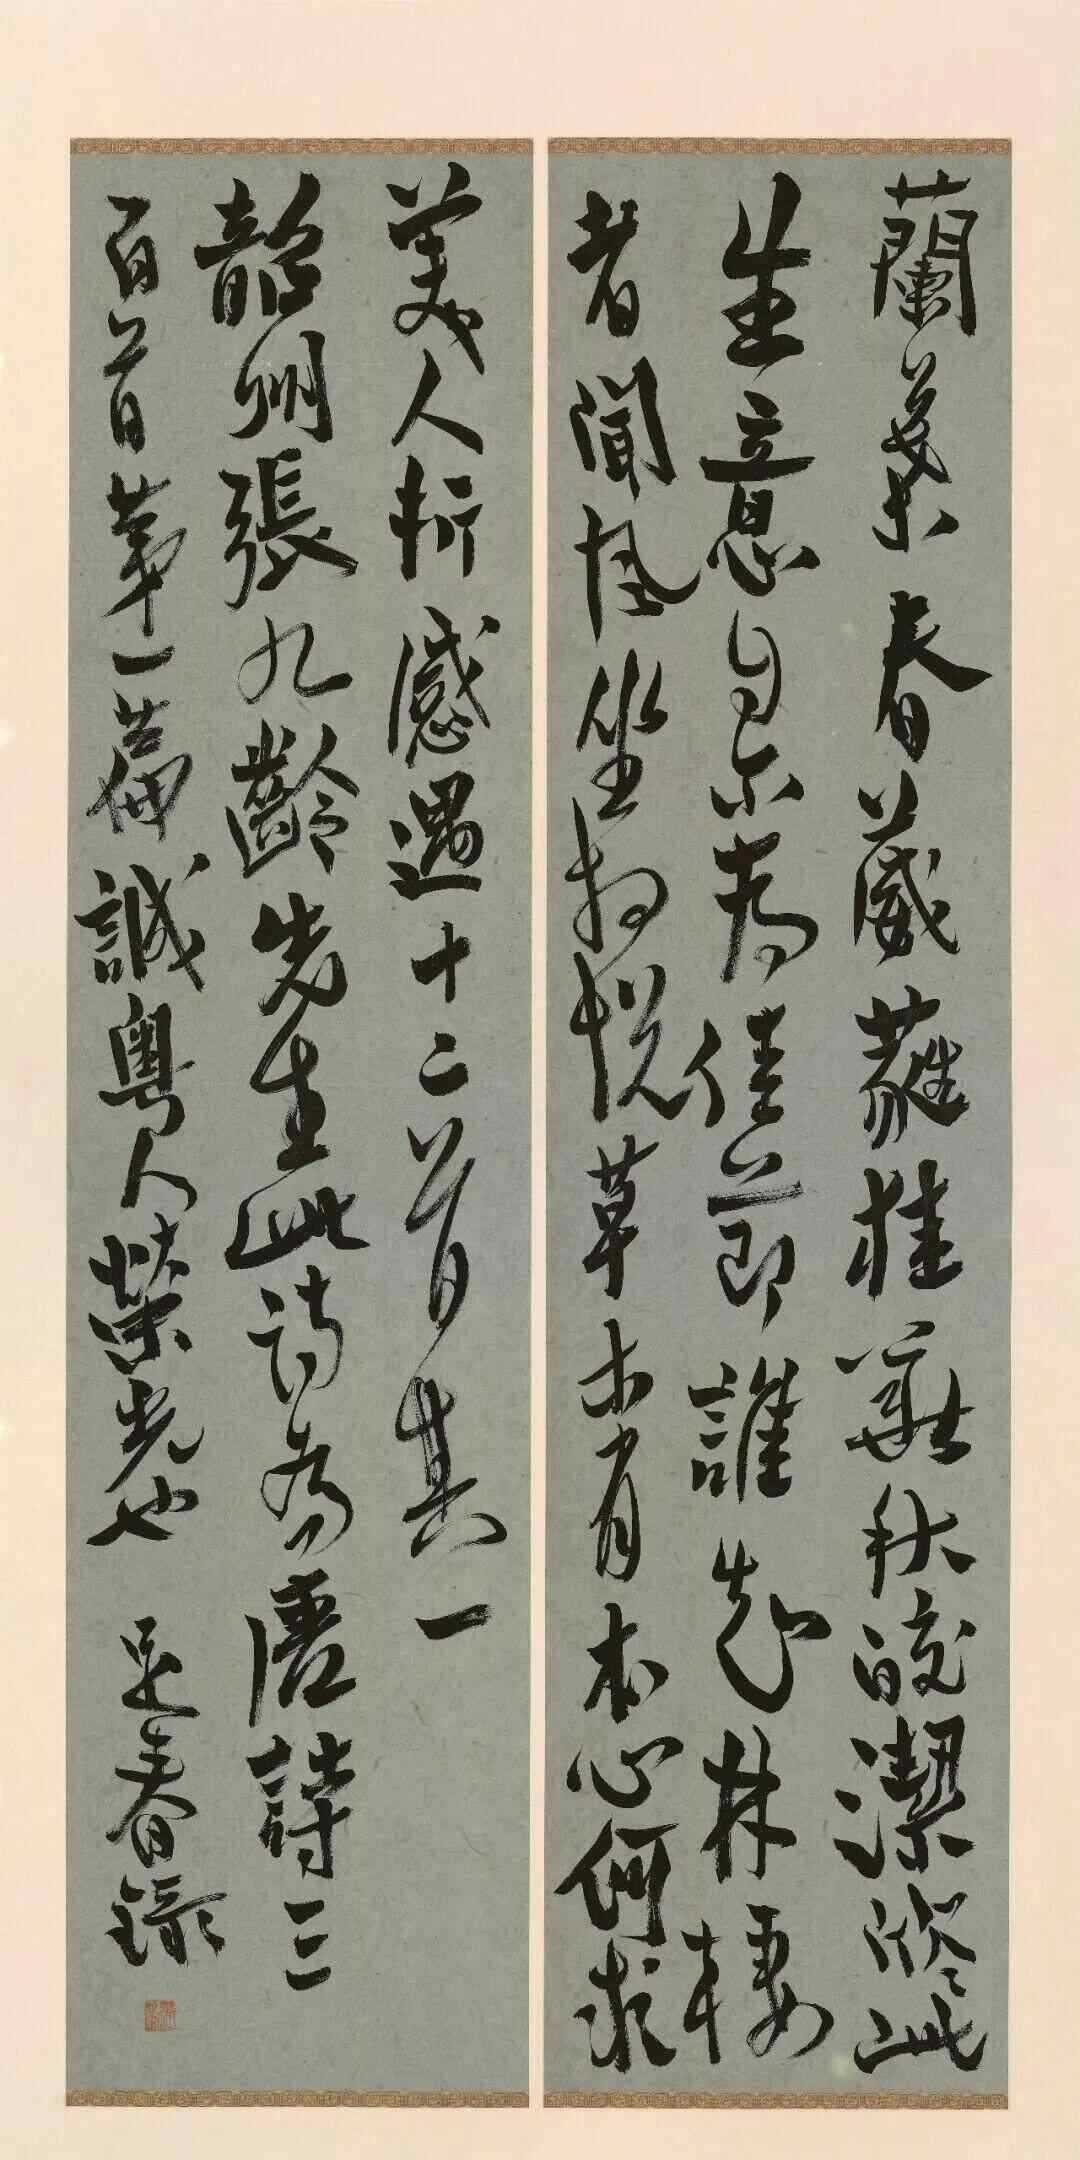 蘭葉春葳蕤桂華秋皎潔欣欣此
生意自尓為佳節誰知林棲
者聞風坐相悅草木有本心何求
美人折感遇十二首其一
韶州張九齡先生此詩為唐詩三
百首第一篇誠粵人榮光也
春錄